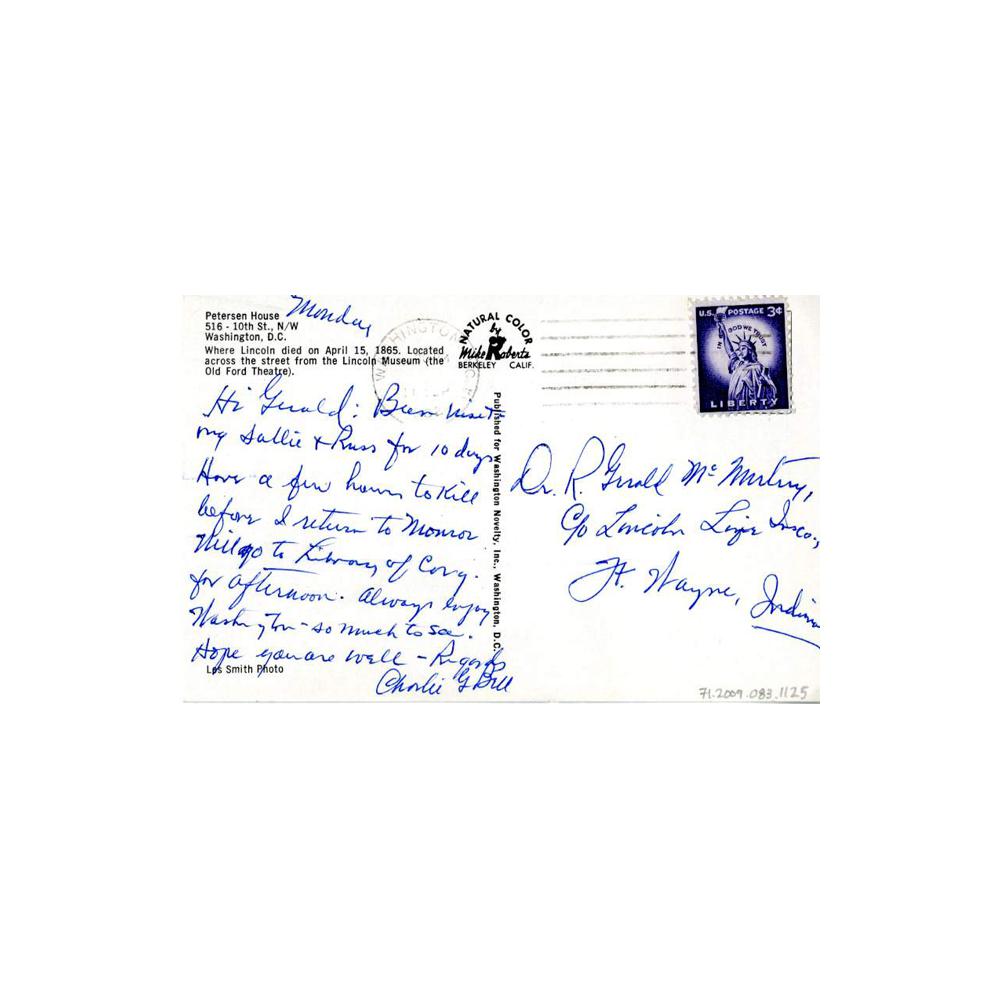 Petersen House
516 - 10th St., N/W
Washington, D.C.
Where Lincoln died on April 15, 1865. Located
across the street from the Lincoln Museum (the
Old Ford Theatre).
Monday
Hi Gerald: Been visit
my Sallie & Russ for 10 days
Have a few hours to kill
before I return to Monroe
Will go to Library of Cong.
for afternoon. Always enjoy
Washington - so much to see.
Hope you are well - Regards
Charlie G Bill
Les Smith Photo
WASHINGTON
NATURAL COLOR
by
Mike Roberts
BERKELEY CALIF.
Published for Washington Novelty, Inc., Washington, D.C.
U.S. POSTAGE 3¢
IN GOD WE TRUST
LIBERTY
Dr. R. Gerald McMurtry,
c/o Lincoln Life Insco.,
Ft. Wayne, Indiana
71.2009.083.1125